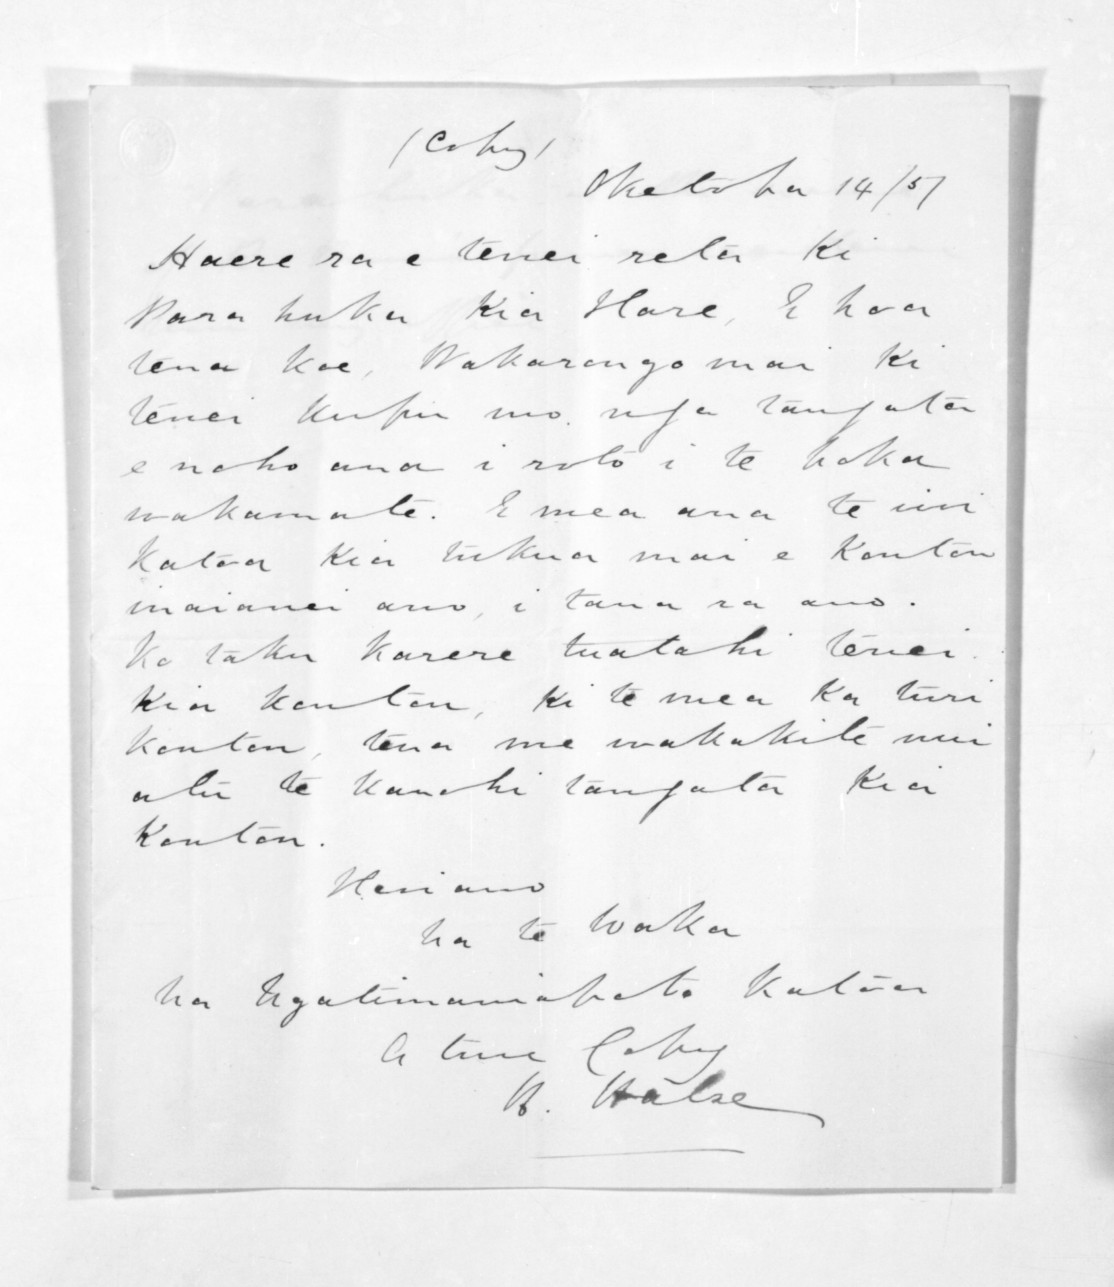 (Copy)
Oketopa 14/57
Haere ra e tenei reta ki
Parahuka kia Hare, E hoa
tena koe, Wakarongo mai ki
tenei kupu mo nga tangata
e noho ana i roto i te hoka
wakamate. E mea ana te iwi
katoa kia tukua mai e Koutou
inaianei ano, i tana ra ano.
Ko taku karere tuatahi tenei.
kia koutou, ki te mea ka turi
koutou, tena me wakakite mui
atu te kanohi tangata kia
koutou.
Heoi ano
na te Waka
na Ngatimaniapoto katoa
A true Copy
H. Halse